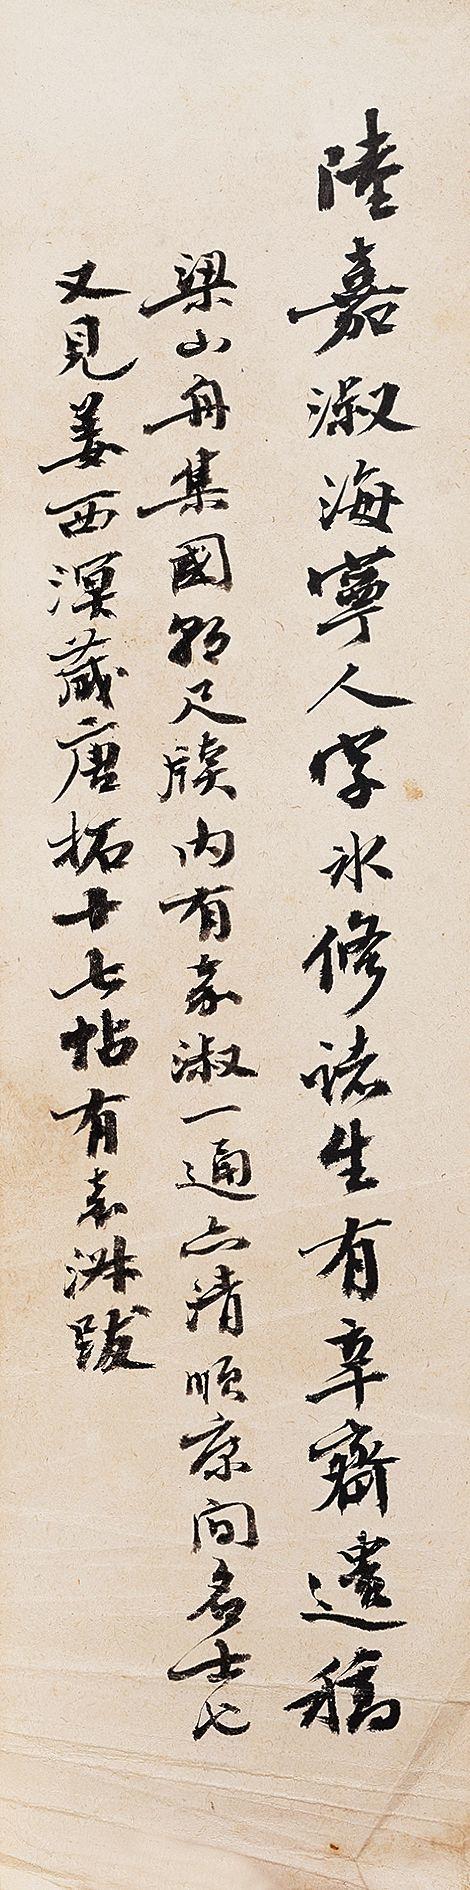 陸嘉淑海寧人字冰修諸生有辛齋遺稿
梁山舟集國朝尺牘內有嘉淑一通亦清順康間名士也
又見姜西溟藏唐拓十七帖有嘉淑跋